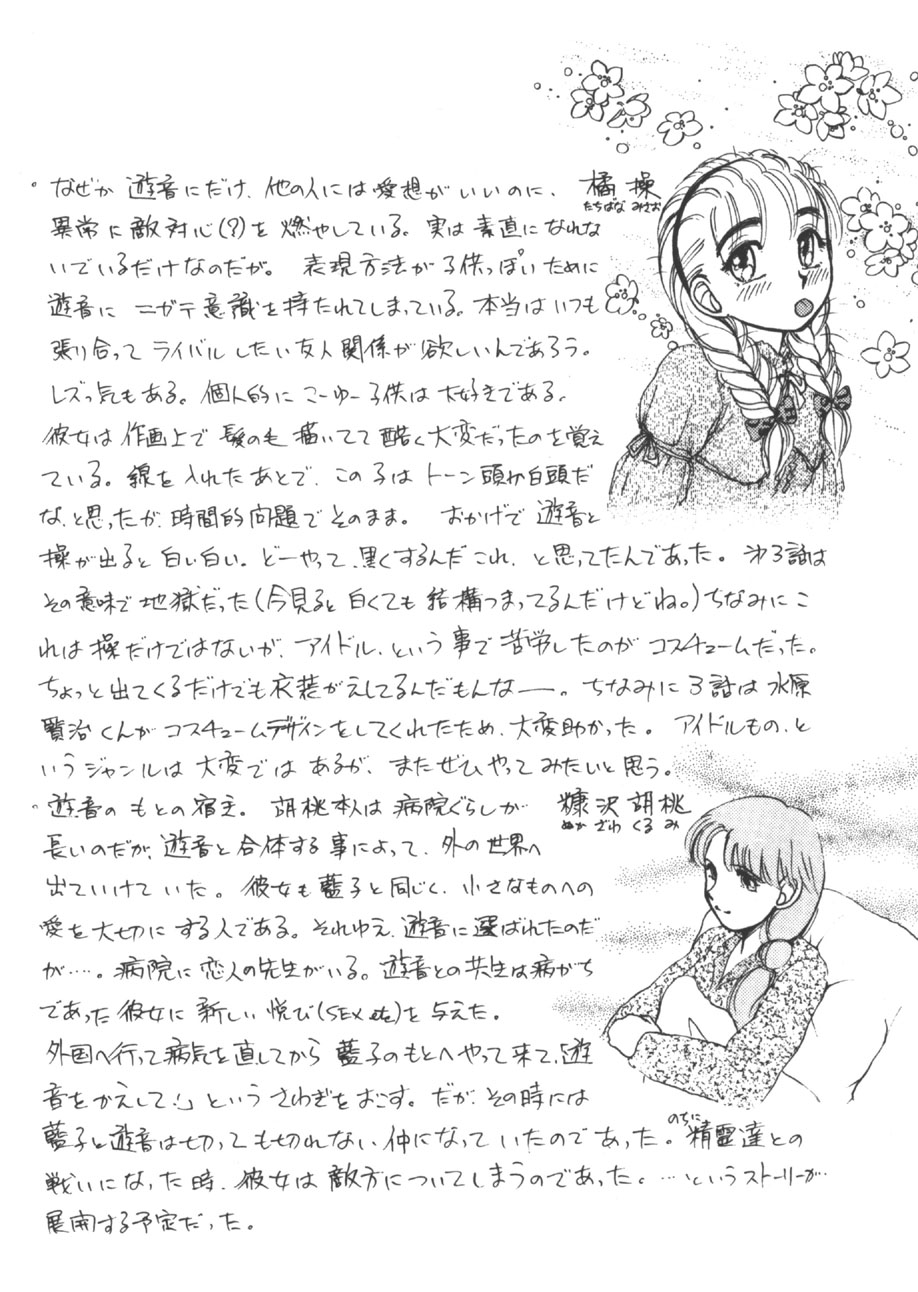 。なぜか 遊音にだけ、他の人には愛想が いいのに、
橘 操
たちばな みさお
異常に敵対心(?)を 燃やしている。実は素直になれな
いでいるだけなのだが。 表現方法が子供っぽいために
遊音に ニガテ意識を持たれてしまっている。本当はいつも
張り合って ライバル したい友人関係が欲しいんであろう。
レズっ気もある。個人的に こーゆー子供は大好きである。
彼女は 作画上で 髪の毛 描いてて 酷く大変だったのを覚え
ている。線を入れたあとで、この子は トーン頭か白頭だ
な、と思ったが、時間的問題でそのまま。 おかげで 遊音と
操が出ると 白い白い。どーやって、黒くするんだこれ、と思ってたんであった。才3話は
その意味で 地獄だった(今見ると 白くても 結構つまってるんだけどね。)ちなみにこ
れは操だけではないが、アイドル、という事で苦労したのが コスチュームだった。
ちょっと出てくるだけでも衣装がえしてるんだもんなー。 ちなみに3話は 水原
賢治くんが コスチュームデザインをしてくれたため、大変助かった。 アイドルもの、と
いうジャンルは 大変では あるが、またぜひやって みたいと思う。
。遊音の もとの宿主。 胡桃本人は 病院ぐらしが
糠沢胡桃
ぬか ざわ くる み
長いのだが、遊音と合体する事によって、外の世界へ
出ていけて いた。 彼女も藍子と同じく、小さなものへの
愛を大切に する人である。それゆえ、遊音に選ばれたのだ
が…。病院に恋人の先生がいる。遊音との共生は病がち
であった 彼女に 新しい 悦び(SEX etc)を 与えた。
外国へ行って病気を直してから 藍子のもとへやって来て、「遊
音をかえして!」という さわぎをおこす。だが、その時には
藍子と遊音は切っても切れない、仲になって いたのであった。のちに精霊達との
戦いになった時、彼女は 敵方についてしまうのであった。…というストーリーが…
展開する予定だった。